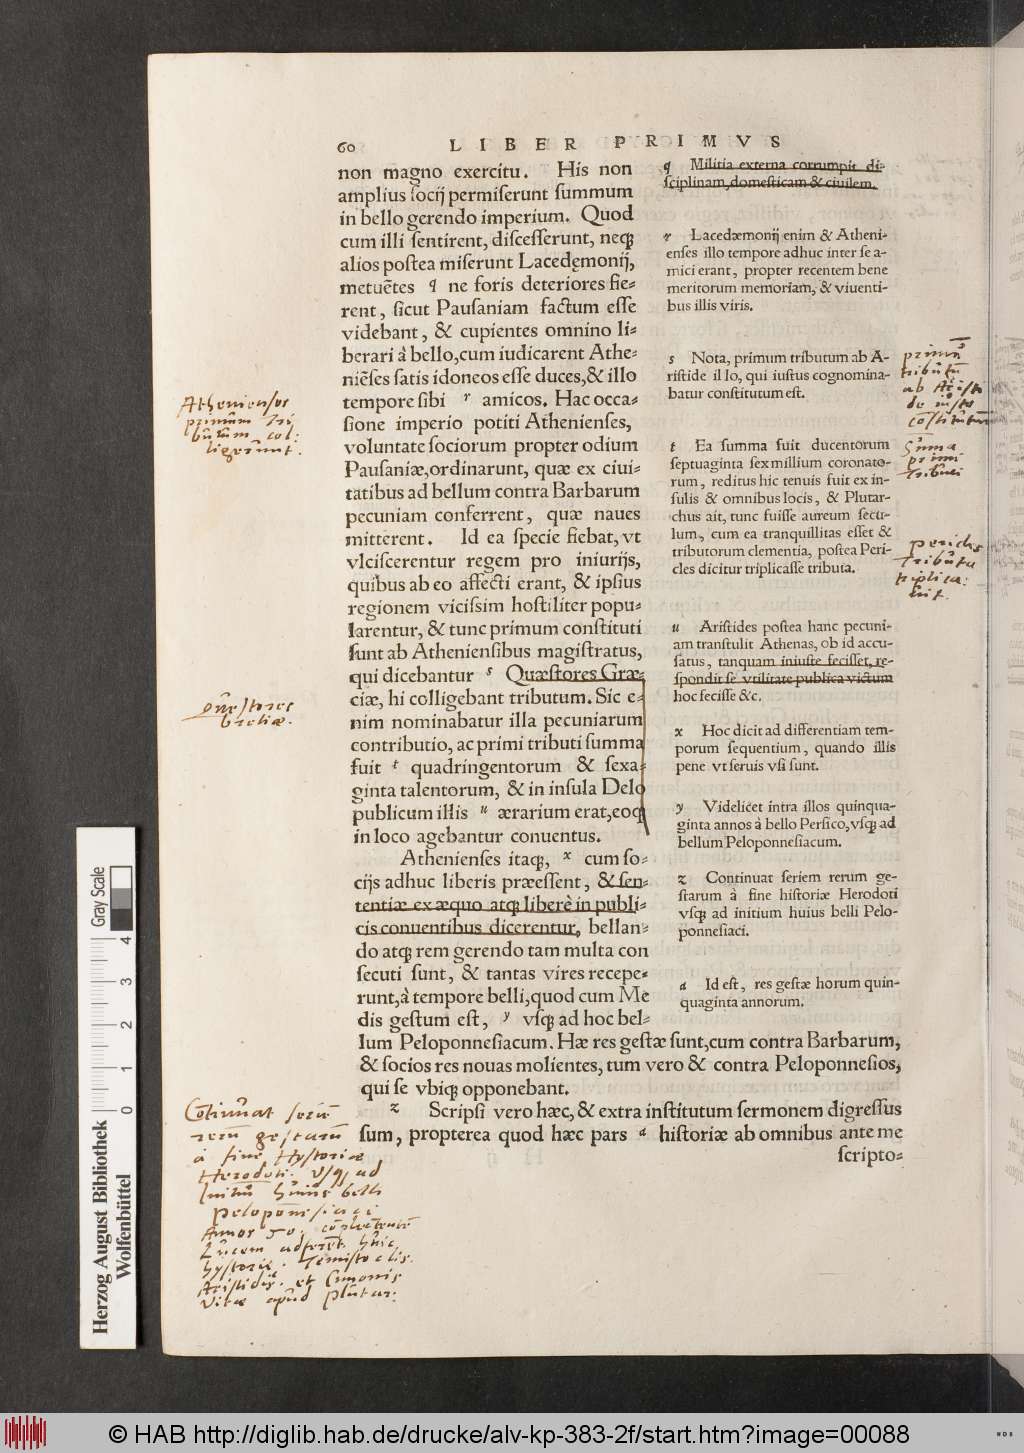 60 LIBER PRIMVS
non magno exercitu. His non
amplius socij permiserunt summum
in bello gerendo imperium. Quod
cum illi sentirent, discesserunt, neqꝫ
alios postea miserunt Lacedęmonij,
metuētes q ne foris deteriores fie⸗
rent, sicut Pausaniam factum esse
videbant, & cupientes omnino li⸗
berari à bello, cum iudicarent Athe⸗
niēses satis idoneos esse duces, & illo
tempore sibi r amicos. Hac occa⸗
sione imperio potiti Athenienses,
voluntate sociorum propter odium
Pausaniæ, ordinarunt, quæ ex ciui⸗
tatibus ad bellum contra Barbarum
pecuniam conferrent, quæ naues
mitterent. Id ea specie fiebat, vt
vlciscerentur regem pro iniurijs,
quibus ab eo affecti erant, & ipsius
regionem vicissim hostiliter popu⸗
larentur, & tunc primum constituti
sunt ab Atheniensibus magistratus,
qui dicebantur s Quæstores Græ⸗
ciæ, hi colligebant tributum. Sic e⸗
nim nominabatur illa pecuniarum
contributio, ac primi tributi summa
fuit t quadringentorum & sexa⸗
ginta talentorum, & in insula Delo
publicum illis u ærarium erat, eoqꝫ
in loco agebantur conuentus.
Athenienses itaqꝫ, x cum so⸗
cijs adhuc liberis præessent, & sen⸗
tentiæ ex æquo atqꝫ liberè in publi⸗
cis conuentibus dicerentur, bellan⸗
do atqꝫ rem gerendo tam multa con
secuti sunt, & tantas vires recepe⸗
runt, à tempore belli, quod cum Me
dis gestum est, y vsqꝫ ad hoc bel⸗
lum Peloponnesiacum. Hæ res gestæ sunt, cum contra Barbarum,
& socios res nouas molientes, tum vero & contra Peloponnesios,
qui se vbiqꝫ opponebant.
z Scripsi vero hæc, & extra institutum sermonem digressus
sum, propterea quod hæc pars a historiæ ab omnibus ante me
scripto⸗
q Militia externa corrumpit di⸗
sciplinam, domesticam & ciuilem.
r Lacedæmonij enim & Atheni⸗
enses illo tempore adhuc inter se a⸗
mici erant, propter recentem bene
meritorum memoriam, & viuenti⸗
bus illis viris.
s Nota, primum tributum ab A⸗
ristide illo, qui iustus cognomina⸗
batur constitutum est.
t Ea summa fuit ducentorum
septuaginta sex millium coronato⸗
rum, reditus hic tenuis fuit ex in⸗
sulis & omnibus locis, & Plutar⸗
chus ait, tunc fuisse aureum secu⸗
lum, cum ea tranquillitas esset &
tributorum clementia, postea Peri⸗
cles dicitur triplicasse tributa.
u Aristides postea hanc pecuni⸗
am transtulit Athenas, ob id accu⸗
satus, tanquam iniuste fecisset, re⸗
spondit se vtilitate publica victum
hoc fecisse &c.
x Hoc dicit ad differentiam tem⸗
porum sequentium, quando illis
pene vt seruis vsi sunt.
y Videlicet intra illos quinqua⸗
ginta annos à bello Persico, vsqꝫ ad
bellum Peloponnesiacum.
z Continuat seriem rerum ge⸗
starum à fine historiæ Herodoti
vsqꝫ ad initium huius belli Pelo⸗
ponnesiaci.
a Id est, res gestæ horum quin⸗
quaginta annorum.
Athenienses
primum tri
butum col:
ligerunt.
Quæstores
Greciæ.
Cōtinuat seriē
rerū gestarū
à fine Hystoriæ
Herodoti. Usqꝫ ad
Initiū huius belli
peloponesiaci
Annos 50. cōplectentē
Lucem adferēt huic
hystoriæ. Temistoclis.
Aristidis. et Cimonis
vitæ apud plutar:
primū
tributū
ab Aristi
de iusto
cōstitutum
Summa
primi
tributi
pericles
tributa
triplica:
uit.
Herzog August Bibliothek
Wolfenbüttel
Gray Scale
0 1 2 3 4
© HAB http://diglib.hab.de/drucke/alv-kp-383-2f/start.htm?image=00088